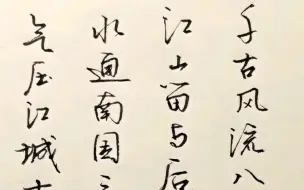 千古风流八
江山留与后
水通南国三
气压江城